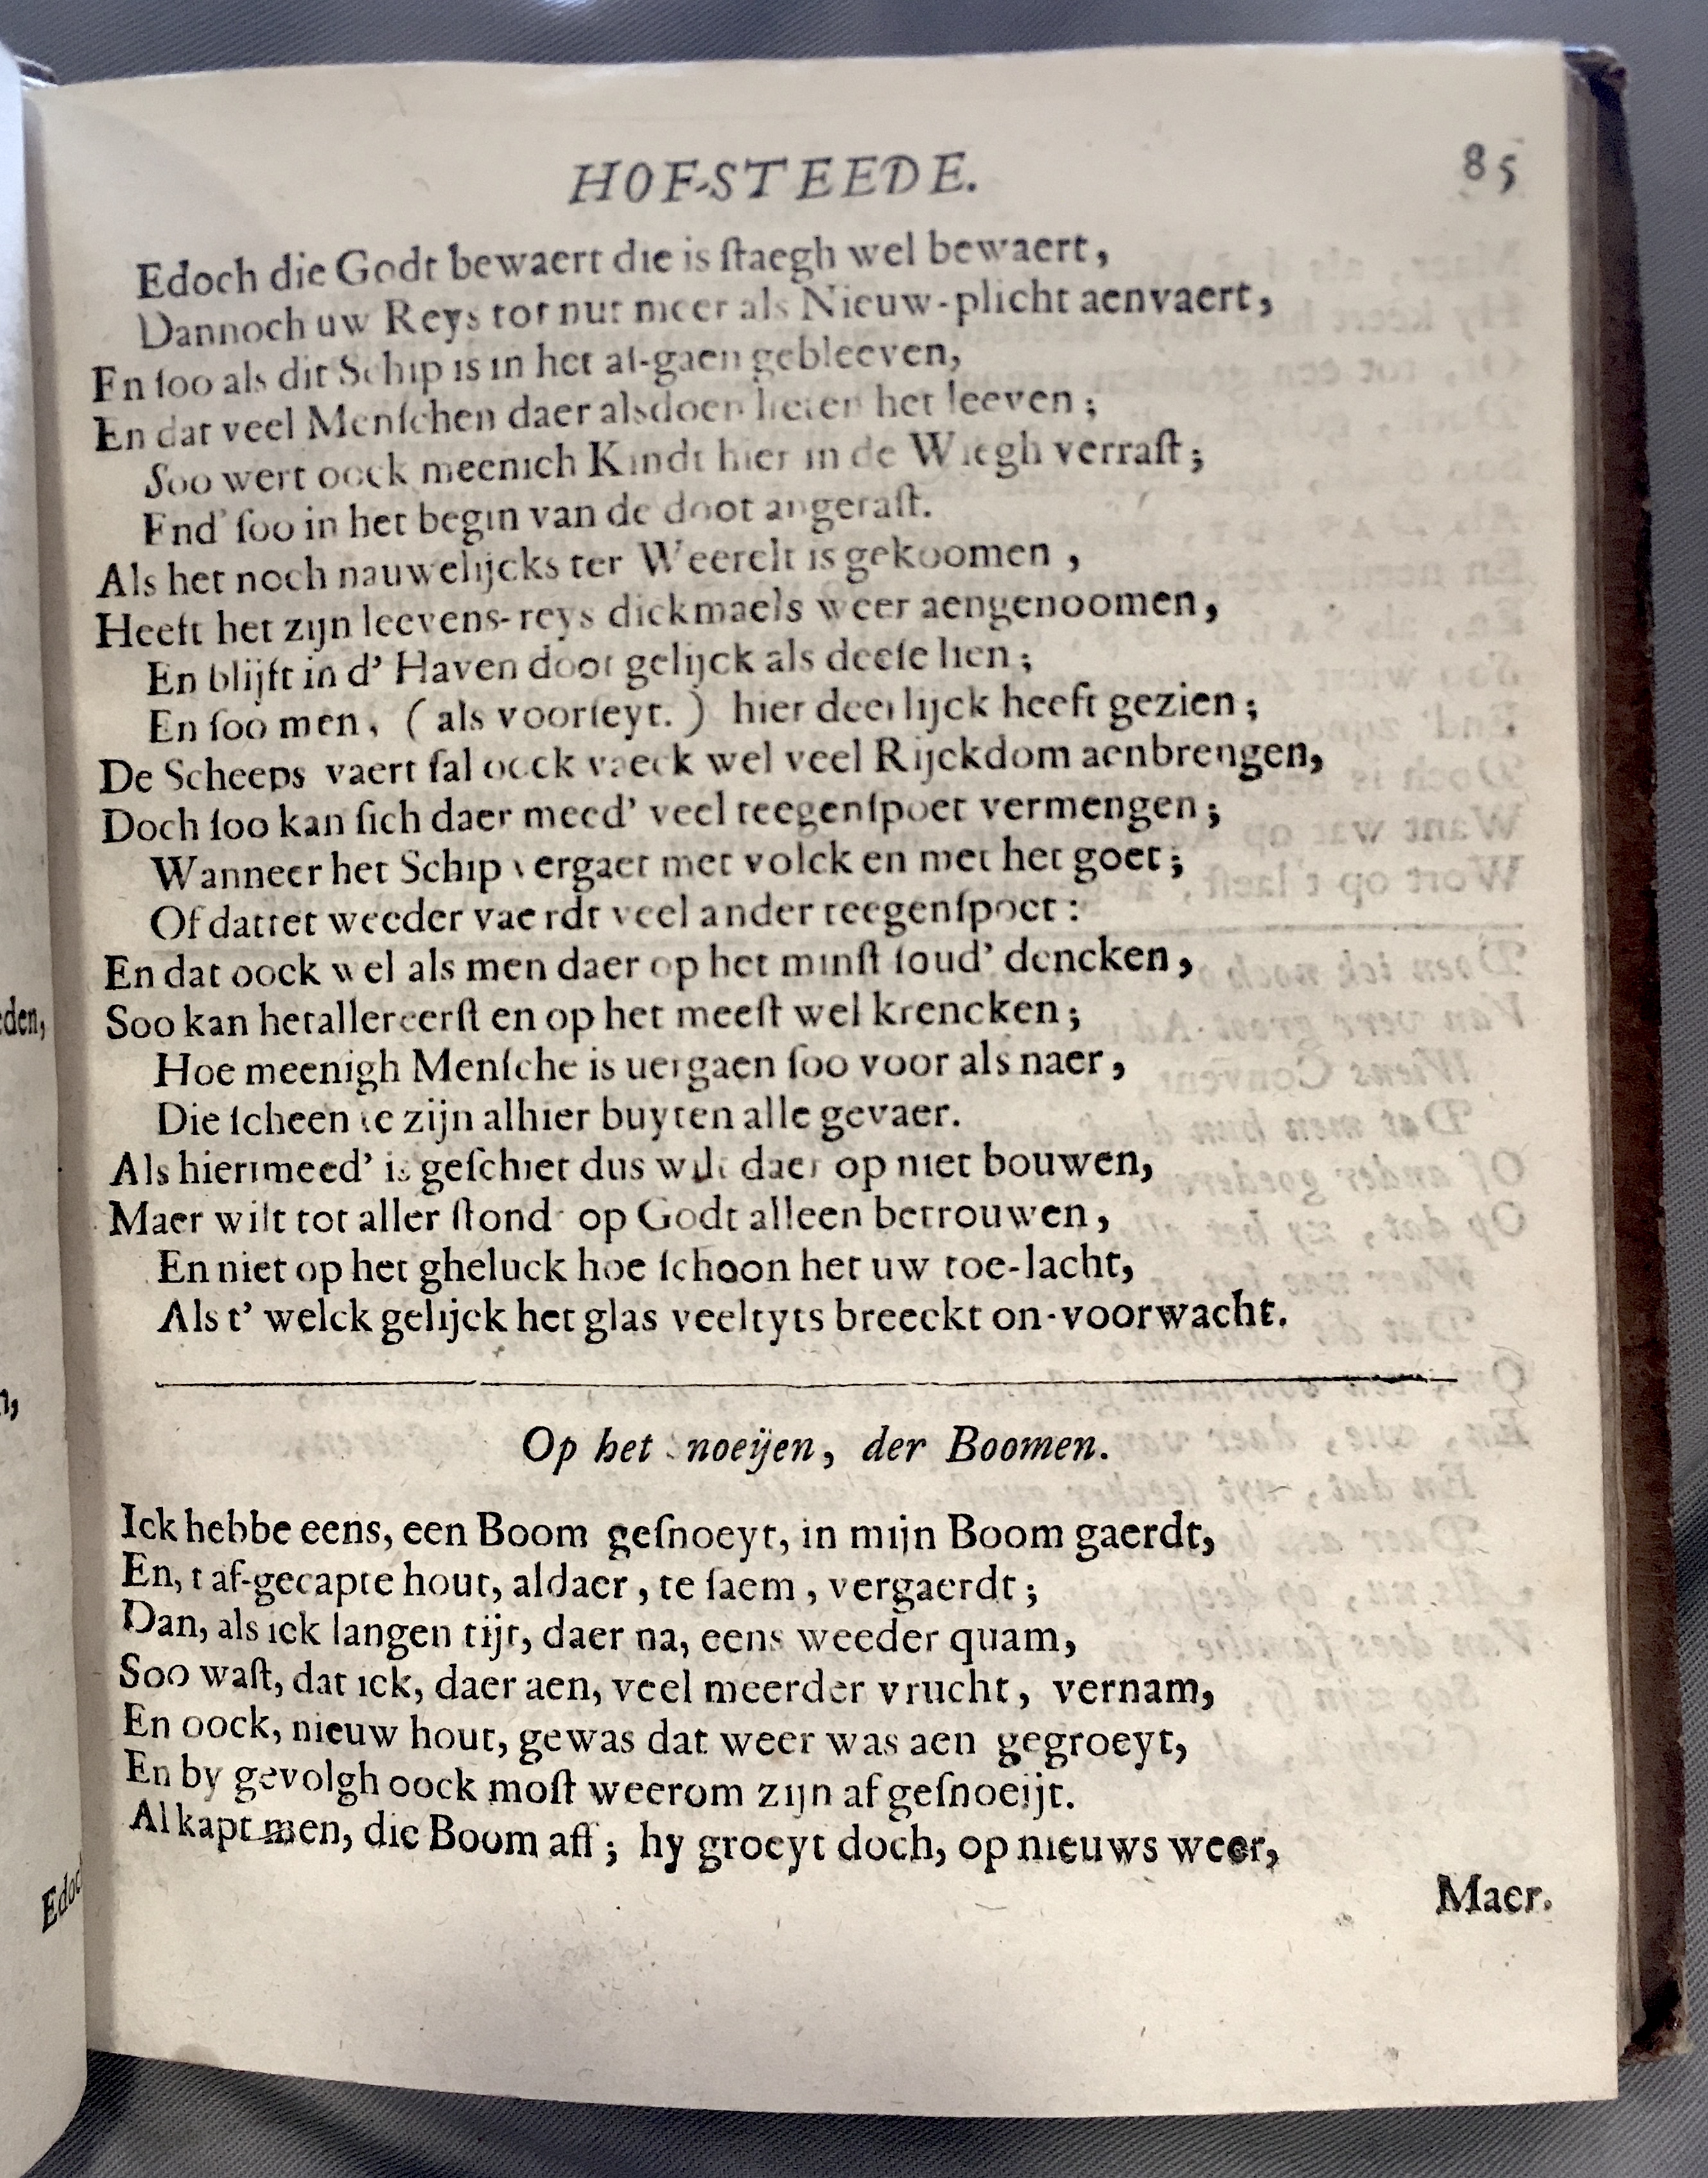 HOF-STEEDE. 85
Edoch die Godt bewaert die is ſtaegh wel bewaert,
Dannoch uw Reys tot nut meer als Nieuw-plicht aenvaert,
En ſoo als dit Schip is in het af-gaen gebleeven,
En dat veel Menſchen daer alsdoen lieten het leeven;
Soo wert oock meenich Kindt hier in de Wiegh verraſt;
End' ſoo in het begin van de doot angeraſt.
Als het noch nauwelijcks ter Weerelt is gekoomen,
Heeft het zijn leevens-reys dickmaels weer aengenoomen,
En blijft in d' Haven doot gelijck als deeſe lien;
En ſoo men, (als voorſeyt.) hier deerlijck heeft gezien;
De Scheeps vaert ſal oock vaeck wel veel Rijckdom aenbrengen,
Doch ſoo kan ſich daer meed' veel teegenſpoet vermengen;
Wanneer het Schip vergaet met volck en met het goet;
Of dattet weeder vaerdt veel ander teegenſpoet:
En dat oock wel als men daer op het minſt ſoud' dencken,
Soo kan hetallereerſt en op het meeſt wel krencken;
Hoe meenigh Menſche is uergaen ſoo voor als naer,
Die ſcheen te zijn alhier buyten alle gevaer.
Als hiermeed' is geſchiet dus wilt daer op niet bouwen,
Maer wilt tot aller ſtond op Godt alleen betrouwen,
En niet op het gheluck hoe ſchoon het uw toe-lacht,
Als t' welck gelijck het glas veeltyts breeckt on-voorwacht.
Op het noeijen, der Boomen.
Ick hebbe eens, een Boom geſnoeyt, in mijn Boom gaerdt,
En, t af-gecapte hout, aldaer, te ſaem, vergaerdt;
Dan, als ick langen tijt, daer na, eens weeder quam,
Soo waſt, dat ick, daer aen, veel meerder vrucht, vernam,
En oock, nieuw hout, gewas dat weer was aen gegroeyt,
En by gevolgh oock moſt weerom zijn af geſnoeijt.
Al kapt men, die Boom aff; hy groeyt doch, op nieuws weer,
Maer.
eden,
n,
Edoc